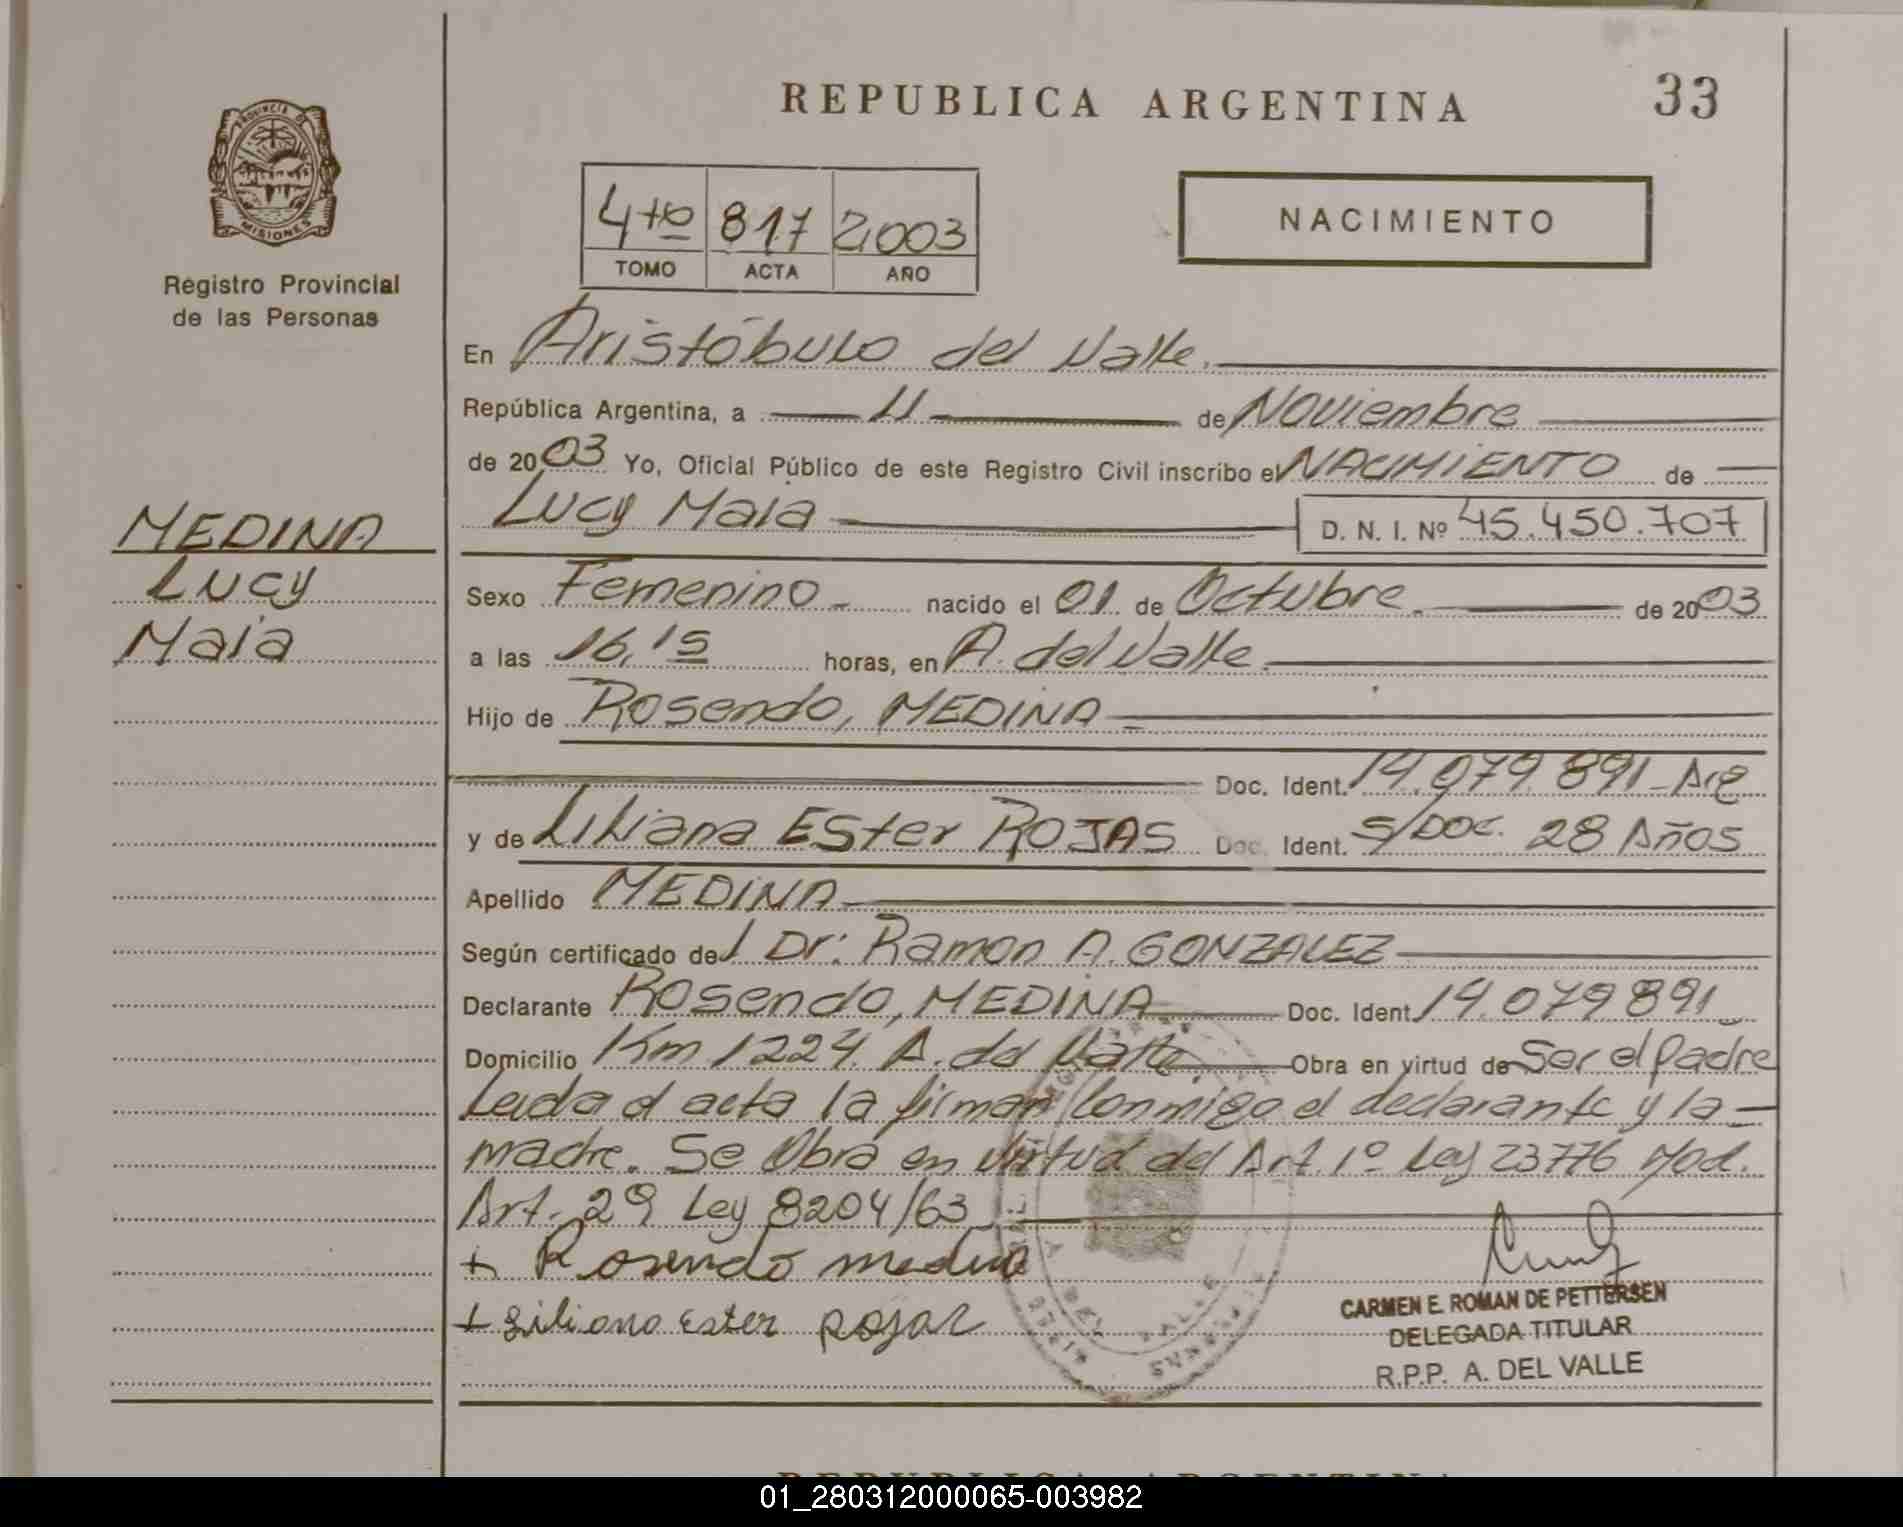 REPUBLICA ARGENTINA
33
PROVINCIA DE
MISIONES
Registro Provincial
de las Personas
4to 817 2,003
TOMO ACTA AÑO
NACIMIENTO
En Aristóbulo del Valle.
República Argentina, a 11 de Noviembre
de 2003 Yo, Oficial Público de este Registro Civil inscribo el NACIMIENTO de
Lucy Maia D. N. I. Nº 45.450.707
MEDINA
Lucy
Maia
Sexo Femenino nacido el 01 de Octubre. de 2003
a las 16,15 horas, en A. del Valle.
Hijo de Rosendo, MEDINA
Doc. Ident. 14.079.891-Arg
y de Liliana Ester ROJAS Doc. Ident. S/DOC. 28 Años
Apellido MEDINA
Según certificado del Dr: Ramon A. GONZALEZ
Declarante Rosendo, MEDINA Doc. Ident. 14.079891
Domicilio Km 1224. A. del Valle Obra en virtud de Ser el Padre
Leida el acta la firman Conmigo el declarante y la
madre. Se Obra en Virtud del Art. 1º Ley 23776 Mod.
Art. 29 Ley 8204/63
+ Rosendo medina
+ Liliana Ester Rojas
A. DEL VALLE
CARMEN E. ROMAN DE PETTERSEN
DELEGADA TITULAR
R.P.P. A. DEL VALLE
REPUBLICA ARGENTINA
01_280312000065-003982